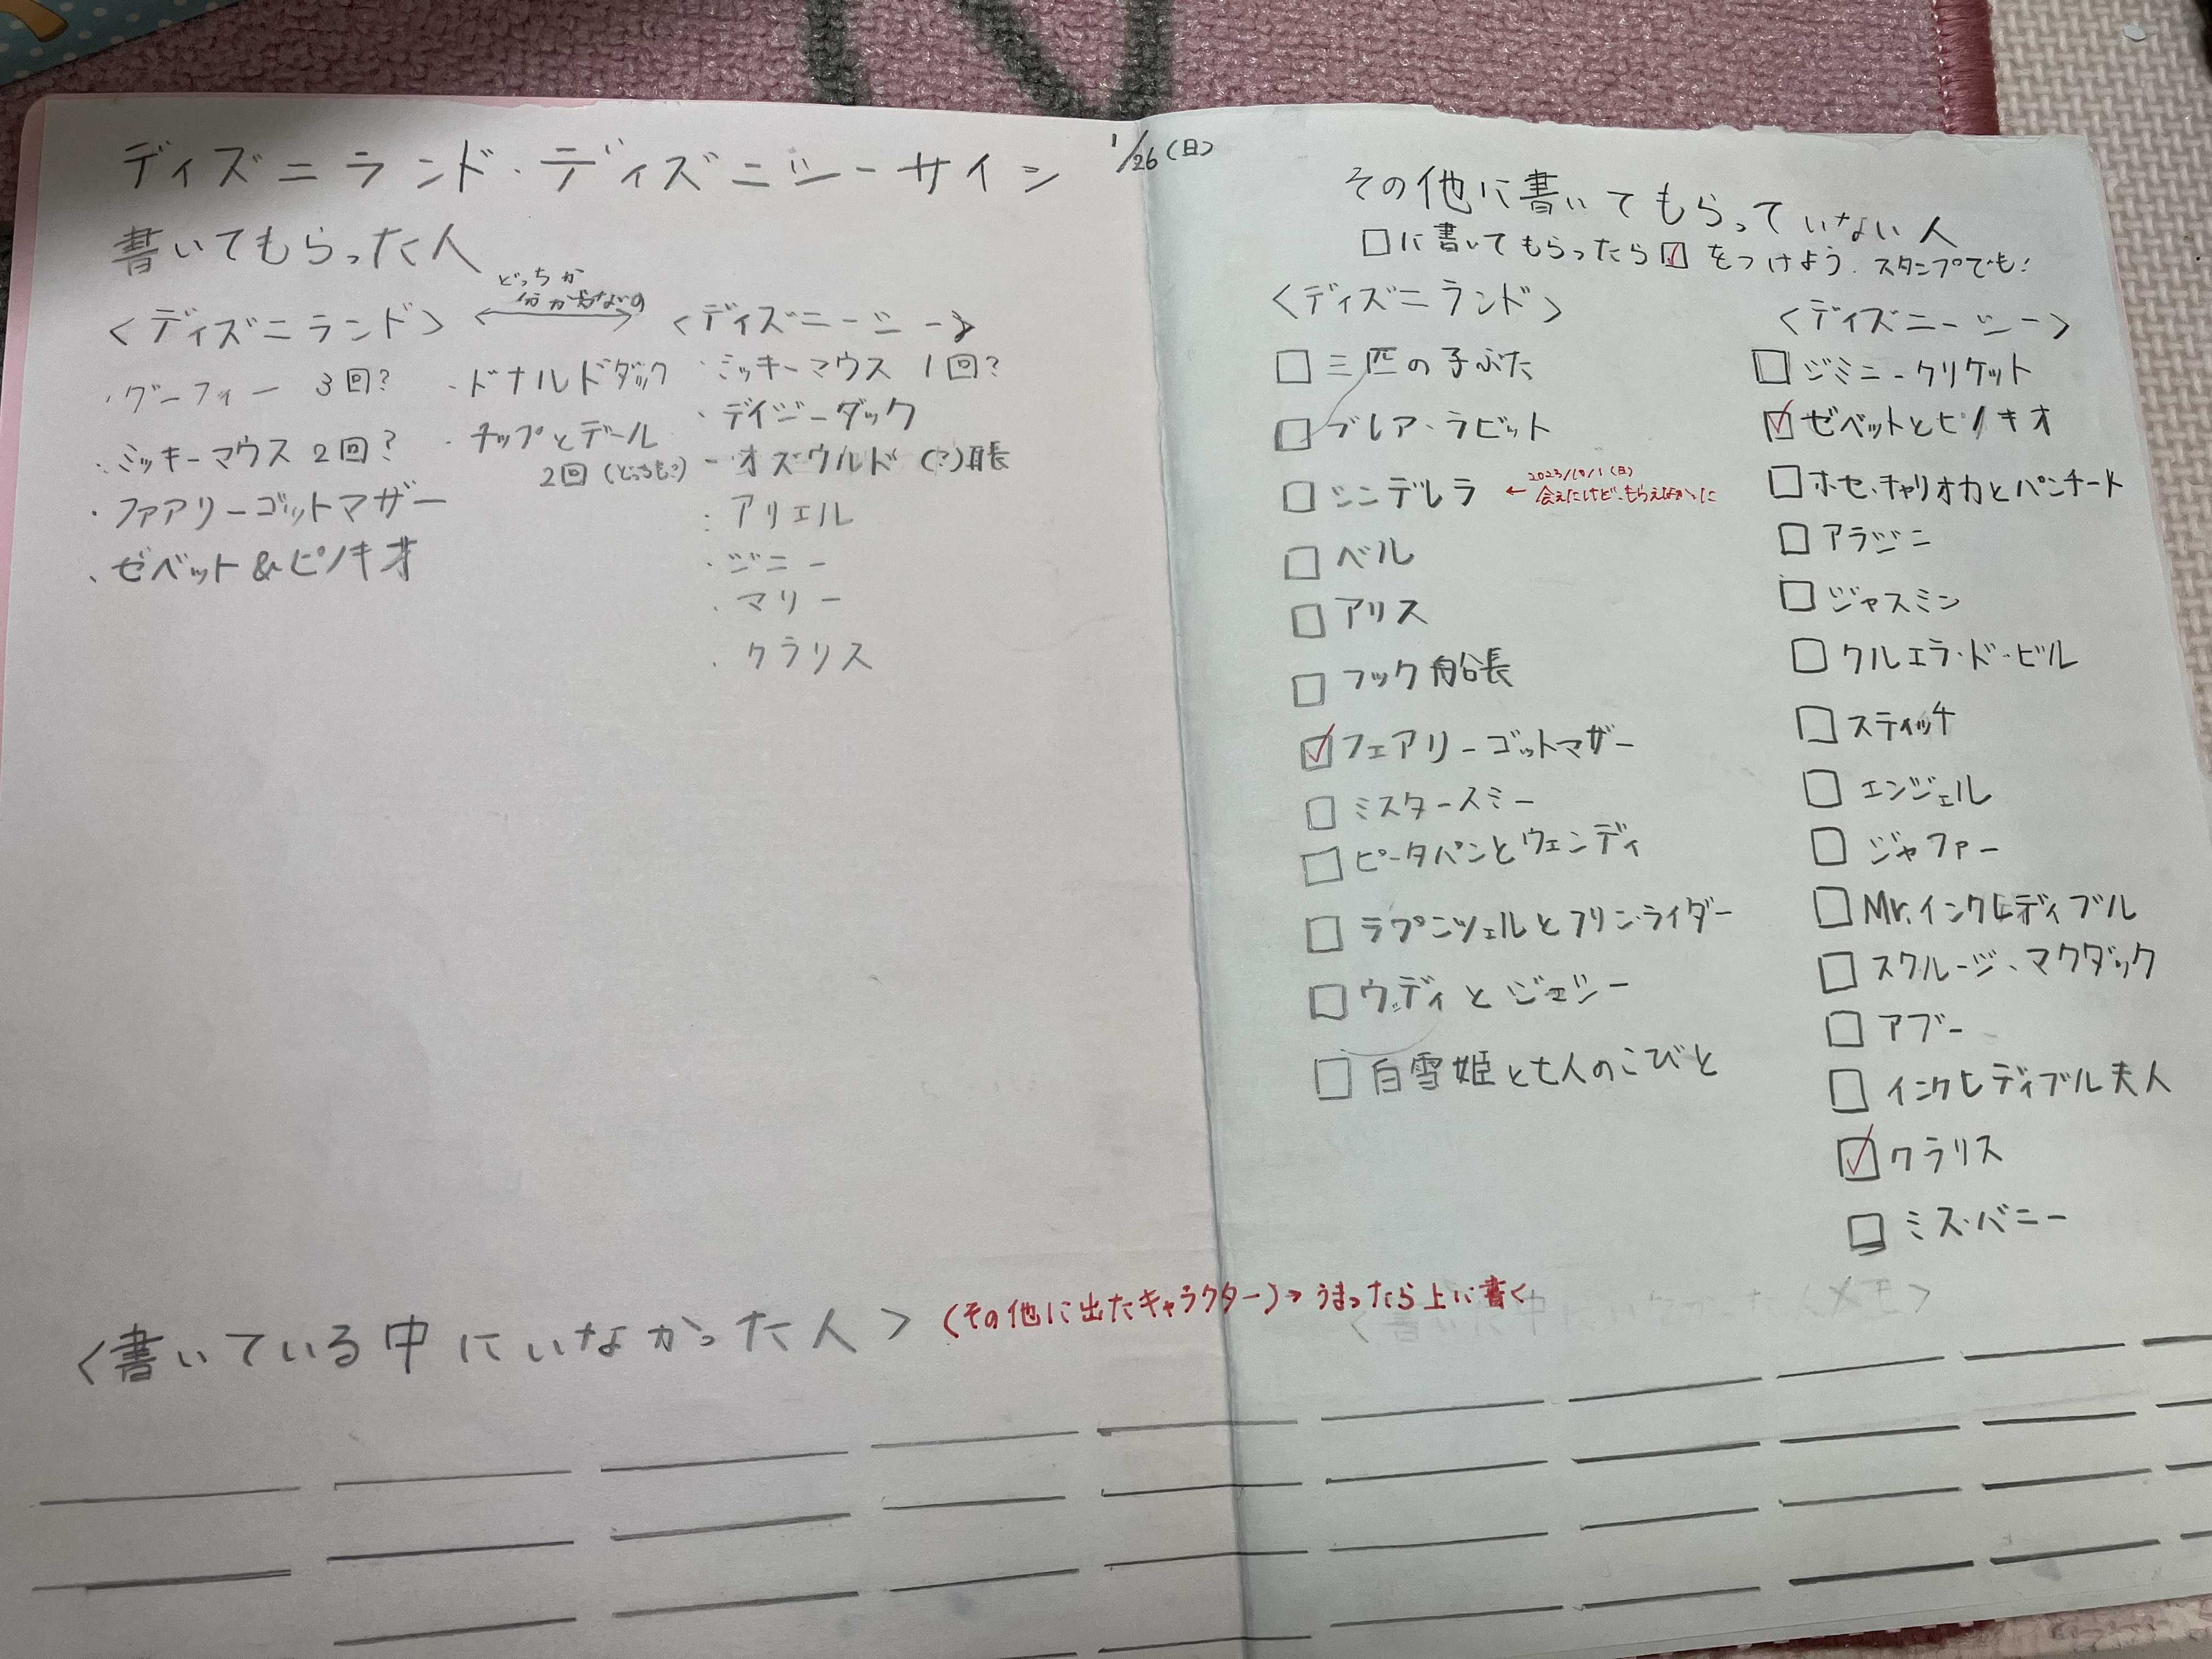 ディズニランド・ディズニシーサイン
1/26(日)
書いてもらった人
どっちか
分からないの
<ディズニランド>
・グーフィー 3回?
・ミッキーマウス 2回?
・ファアリーゴットマザー
・ゼベット&ピノキオ
・ドナルドダック
・チップとデール
2回(どっちも?)
<ディズニーシー>
・ミッキーマウス 1回?
・デイジーダック
・オズウルド(?)
・アリエル
・ジニー
・マリー
・クラリス
その他に書いてもらっていない人
□に書いてもらったら☑をつけよう.スタンプでも!
<ディズニランド>
□三匹の子ぶた
□ブレア・ラビット
□シンデレラ ← 2023/10/1(日)
会えたけど、もらえなかった
□ベル
□アリス
□フック船長
☑フェアリーゴットマザー
□ミスタースミー
□ピータパンとウェンディ
□ラプンツェルとフリン・ライダー
□ウッディとジェシー
□白雪姫と七人のこびと
<ディズニーシー>
□ジミニークリケット
☑ゼベットとピノキオ
□ホセ・キャリオカとパンチート
□アラジン
□ジャスミン
□クルエラ・ド・ビル
□スティッチ
□エンジェル
□ジャファー
□Mr.インクレディブル
□スクルージ・マクダック
□アブー
□インクレディブル夫人
☑クラリス
□ミス・バニー
<書いている中にいなかった人>
(その他に出たキャラクター)→うまったら上に書く